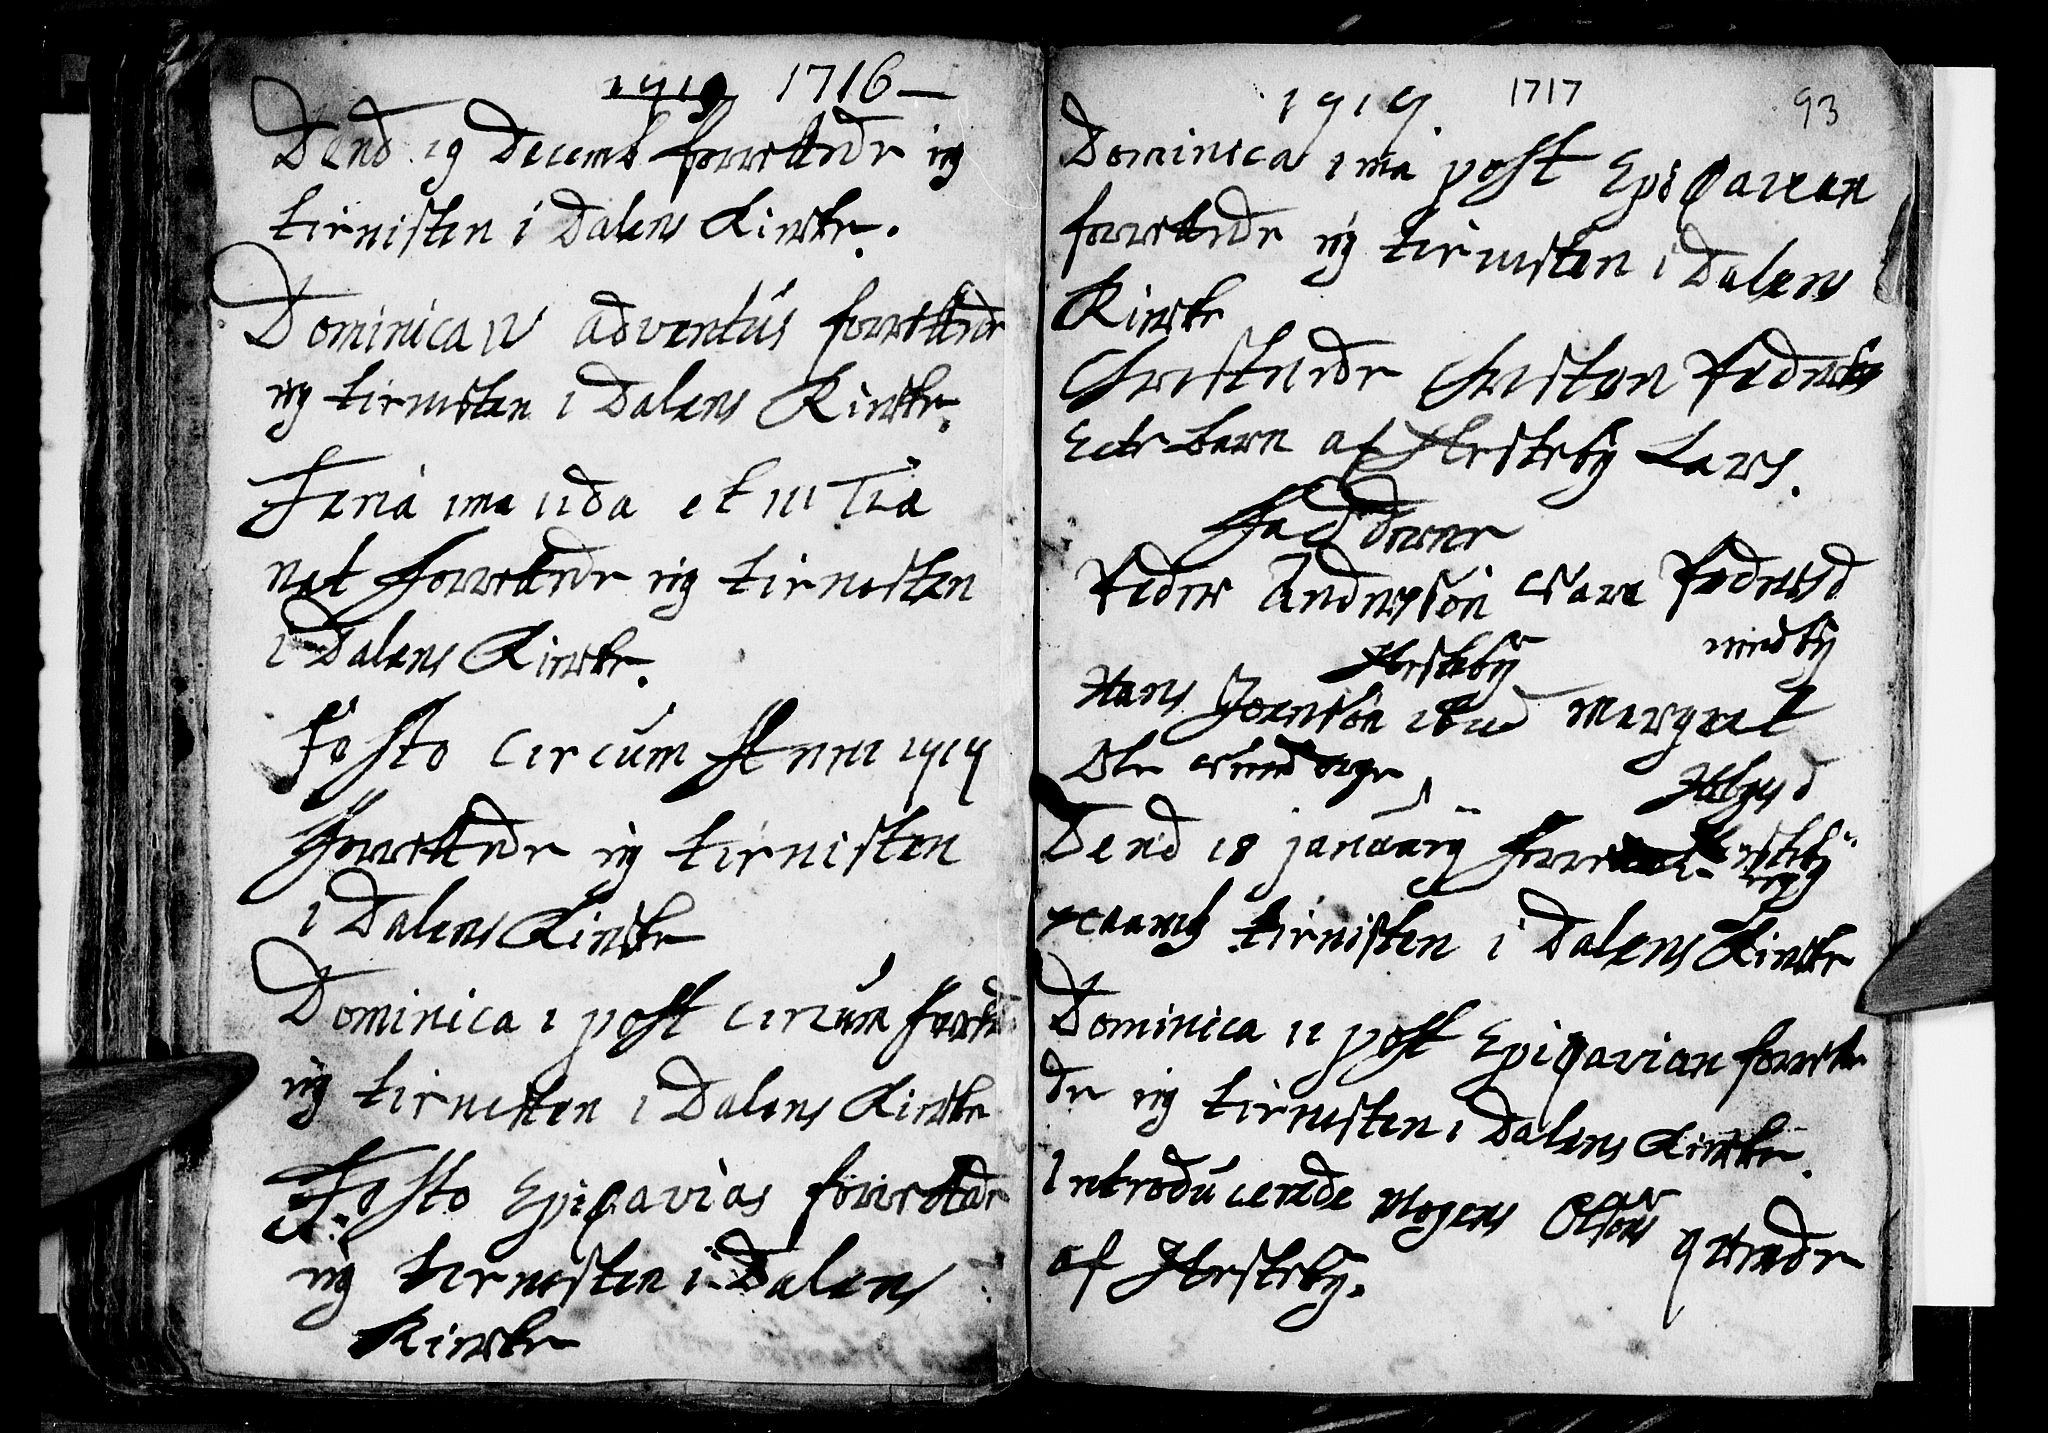 1719 1716 —
Dend 19 Decemb forrettede ieg
tienisten i Dalens Kircke.
Dominica IV adventus forrettede
ieg tienisten i Dalens Kircke.
Feria ima iida et iii Tia
nat forrettede ieg tienesten
i Dalens Kircke.
Festo Circumst nni 1717
forrettede ieg tienisten
i Dalens Kircke
Dominica 1 post circum forretted
ieg tienisten i Dalens Kircke
Festo Epiqavias forrettede
ieg tienesten i Dalens
Kircke
1717. 1717 93
Dominica 1ma post Epiqavian
forrettede ieg tienisten i Dalens
Kircke
Christenede Christen Peders
Ecte barn af Herskeby Lars.
Faddeerne
Peder Andersøn Peders d
Herskeby
Hans Joensøn ibid Margret
Ole
Dend 18 januarij Herskeby
ieg
tienisten i Dalens Kircke
Dominica 11 post Epiqavian forrette
de ieg tienisten i Dalens Kircke.
Introducerede Mogens Olsøns
af Herskeby.